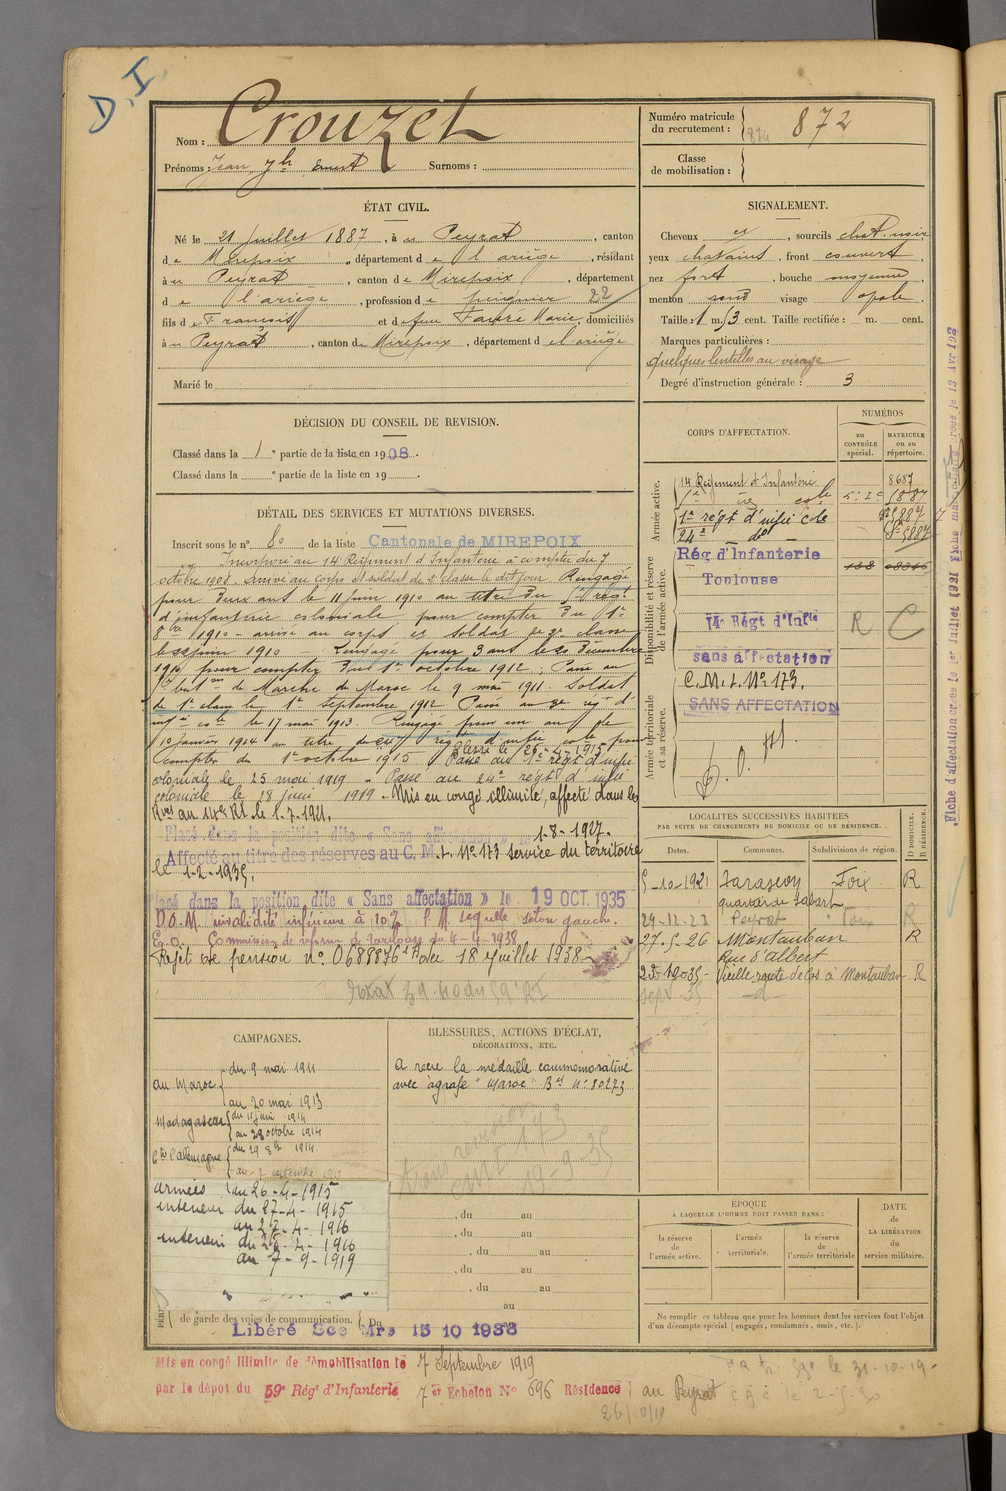 D.I.
Nom : Crouzet
Prénoms : Jean Jph Ernest Surnoms :
Numéro matricule
du recrutement : 874 872
Classe
de mobilisation :
ÉTAT CIVIL.
Né le 21 Juillet 1887, à au Peyrat, canton
de Mirepoix, département de l'ariège, résidant
à au Peyrat, canton de Mirepoix, département
d e l'ariège, profession de peignier 22
fils de François et de feue Fauré Marie, domiciliés
à au Peyrat, canton de Mirepoix, département d e l'ariège
Marié le
SIGNALEMENT.
Cheveux et, sourcils chat. noir
yeux chatains, front couvert,
nez fort, bouche moyenne,
menton rond visage ovale.
Taille : 1 m. 73 cent. Taille rectifiée : m. cent.
Marques particulières :
quelques lentilles au visage
Degré d'instruction générale : 3
DÉCISION DU CONSEIL DE REVISION.
Classé dans la 1e partie de la liste en 1908.
Classé dans la e partie de la liste en 19
DÉTAIL DES SERVICES ET MUTATIONS DIVERSES.
Inscrit sous le n° 80 de la liste Cantonale de MIREPOIX
Incorporé au 14e Régiment d'Infanterie à compter du 7
octobre 1908. Arrivé au corps et soldat de 2e classe le dit jour. Rengagé
pour deux ans le 11 juin 1910 au titre du régt
d'infanterie coloniale pour compter du 1er
8bre 1910 - arrivé au corps et soldat de 2e classe
le juin 1910 - Rengagé pour 3 ans le décembre
1910 pour compter du 1er octobre 1912 ; Passé au
baton de Marche du Maroc le 9 mai 1911. Soldat
de 1e classe le 1er Septembre 1912 Passé au régt d'
infie cole le 17 mai 1913. Rengagé pour un an le
10 janvier 1914 au titre du régt d'infie cole pour
compter du 1er octobre 1915 Blessé le 25-4-1915. Passé au 1er régt d'infie
coloniale le 25 mai 1919 - Passé au 24e régt d'infie
coloniale le 18 juin 1919 - Mis en congé illimité, affecté dans les
Rves au 14e RI. le 1.7.1921.
Placé dans la position dite « Sans affectation » le 1-8-1927.
Affecté au titre des réserves au C. M. I. N° 173 service du territoire
le 1-2-1935.
Placé dans la position dite « Sans affectation » le 19 OCT. 1935
D.O.M. invalidité inférieure à 10% P.M. séquelle séton gauche.
Commission de réforme de Toulouse du 4-4-1938
Rejet de pension n° 18 Juillet 1938
CORPS D'AFFECTATION.
NUMÉROS
au
CONTRÔLE
spécial.
MATRICULE
ou au
répertoire.
Armée active.
14 Régiment d'Infanterie 8687
1er régt d'infie cole
24e - do -
Disponibilité et réserve
de l'armée active.
Rég d'Infanterie
Toulouse
14e Régt d'Infie R C
sans affectation
Armée territoriale
et sa réserve.
C.M.I. N° 173.
SANS AFFECTATION
LOCALITÉS SUCCESSIVES HABITÉES
PAR SUITE DE CHANGEMENTS DE DOMICILE OU DE RÉSIDENCE.
Dates. Communes. Subdivisions de région. D DOMICILE. R RÉSIDENCE.
5-10-1921 Tarascon Foix R
quartier de Sabart
29-12-23 Peyrat Foix R
27-5-26 Montauban R
Rue d'Albert
23-10-35 Vieille route de Cos à Montauban R
Sept 35 -d-
CAMPAGNES.
au Maroc du 9 mai 1911
au 20 mai 1913
Madagascar du 1914
au 28 octobre 1914
Cie l'allemagne du 29 8bre 1914
au 7 septembre 1919
armées au 26-4-1915
interieur du 27-4-1915
au 27-4-1916
interieur du 28-4-1916
au 7-9-1919
de garde des voies de communication. Du au
Libéré Sce Mre 15 10 1938
BLESSURES, ACTIONS D'ÉCLAT,
DÉCORATIONS, ETC.
A reçu la médaille commémorative
avec agrafe "Maroc" Bet N° 80273
CMI 173
19-9-35
, du au
, du au
, du au
, du au
, du au
au
EPOQUE
À LAQUELLE L'HOMME DOIT PASSER DANS :
la réserve
de
l'armée active.
l'armée
territoriale.
la réserve
de
l'armée territoriale
DATE
de
LA LIBÉRATION
du
service militaire.
Ne remplir ce tableau que pour les hommes dont les services font l'objet
d'un décompte spécial (engagés, condamnés, omis, etc.).
Mis en congé illimité de démobilisation le 7 Septembre 1919
par le dépôt du 59e Rég' d'Infanterie 7e Echelon N° 696 Résidence au Peyrat
26/10/19